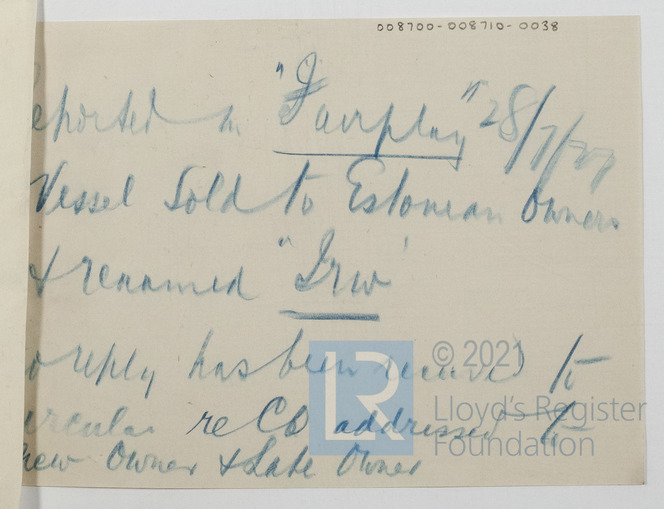 008700-008710-0038
eported in "Fairplay" 28/7/27
Vessel Sold to Estonian Owners
& renamed "Irw"
o reply has been received to
ircular re CO addressed to
new Owner & Late Owner
LR
© 2021
Lloyd's Register
Foundation